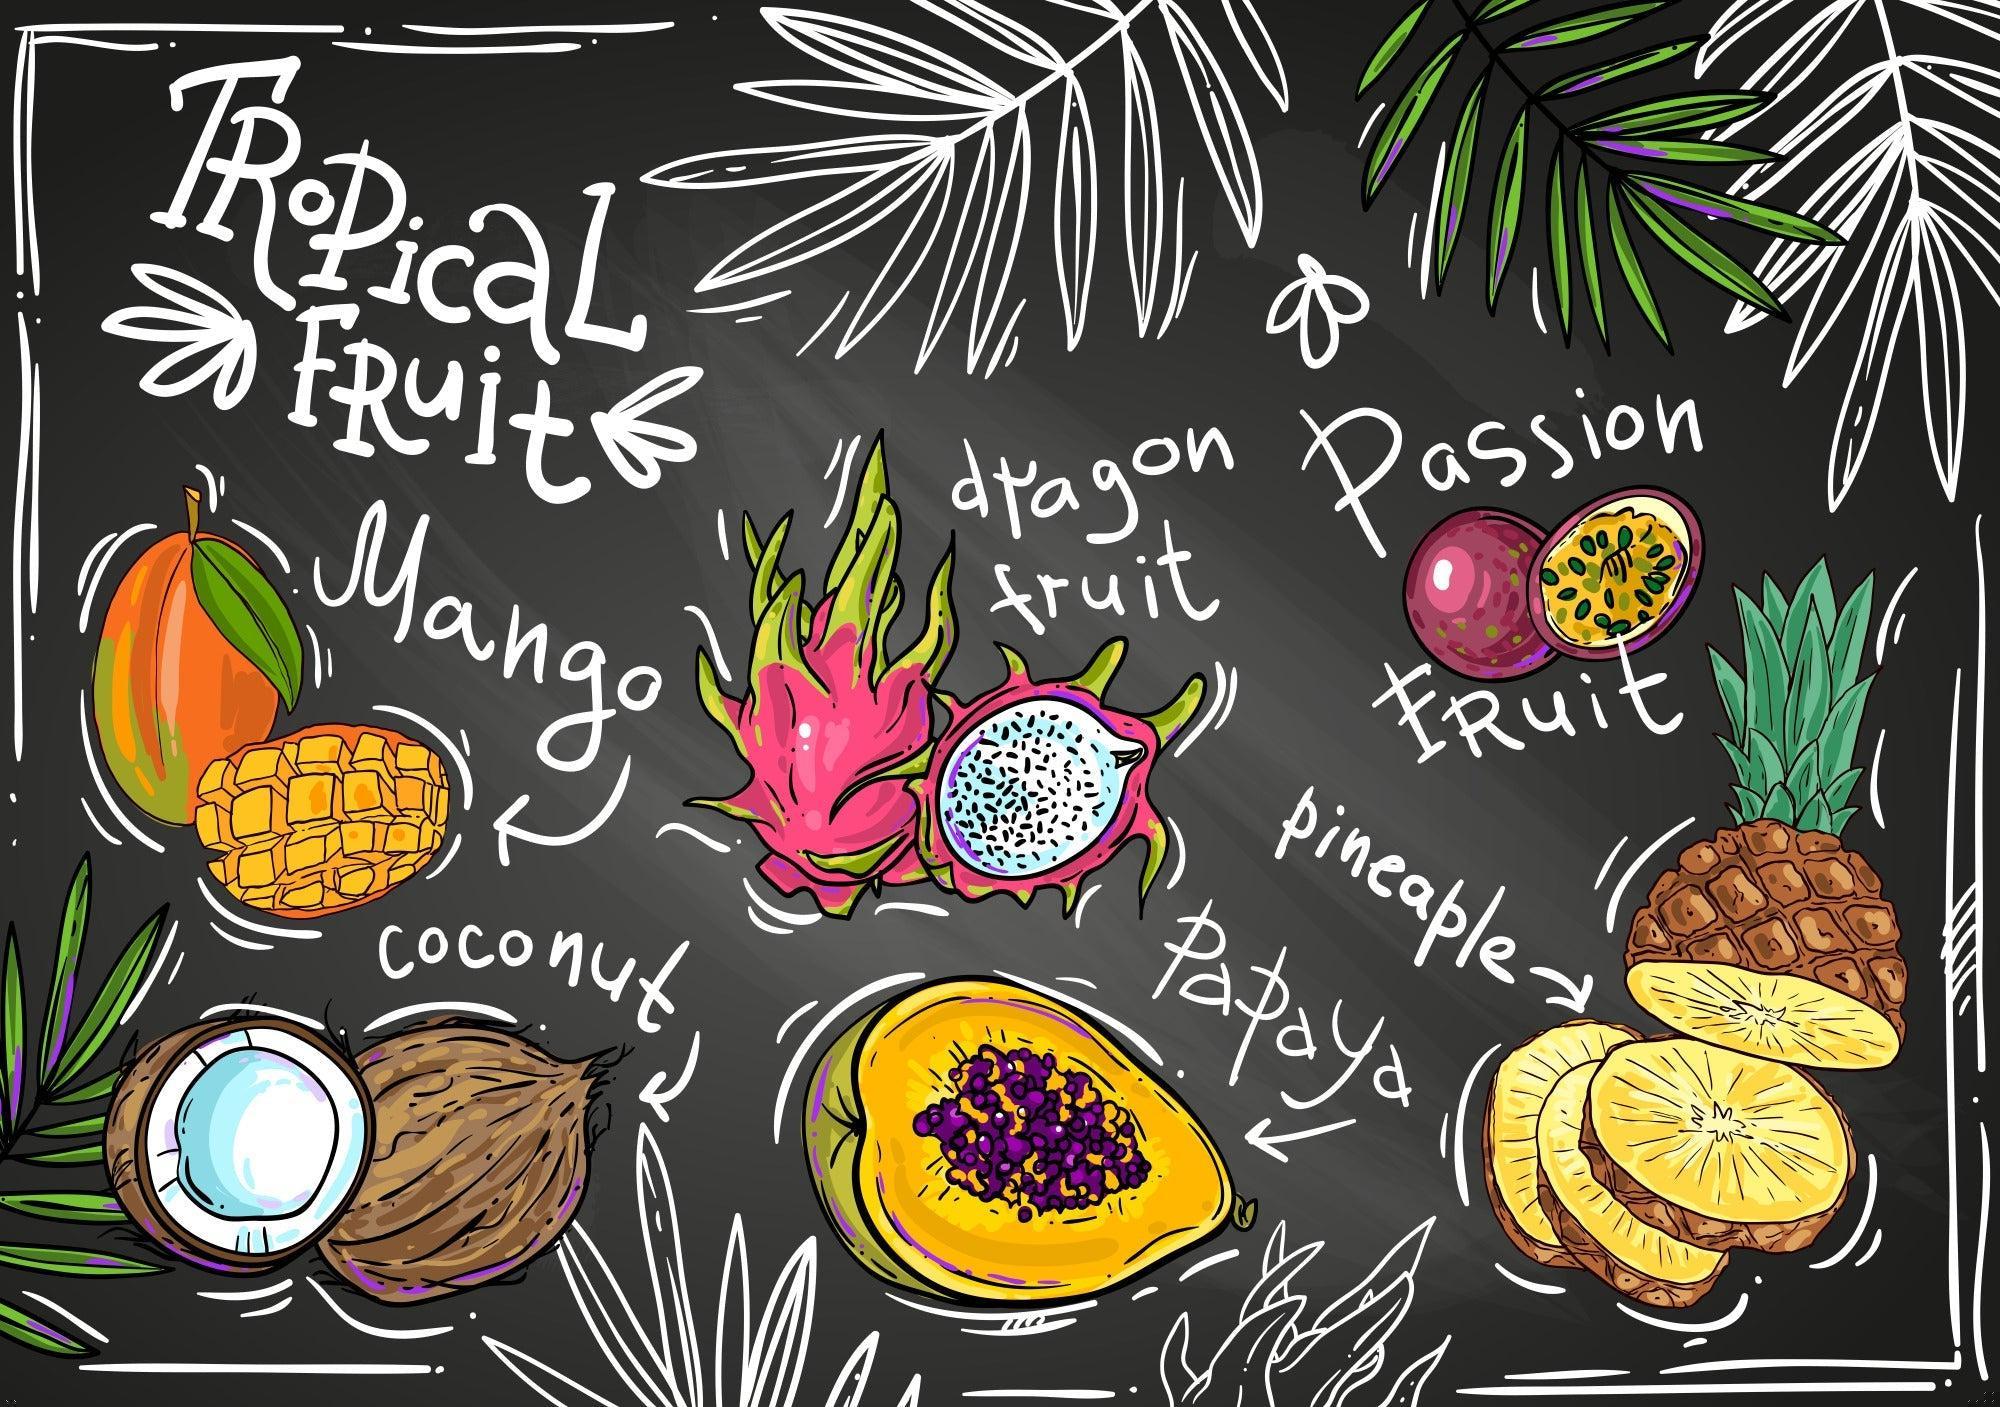 TRopical
FRuit
Mango
dragon
fruit
Passion
FRuit
pineapple
coconut
Papaya